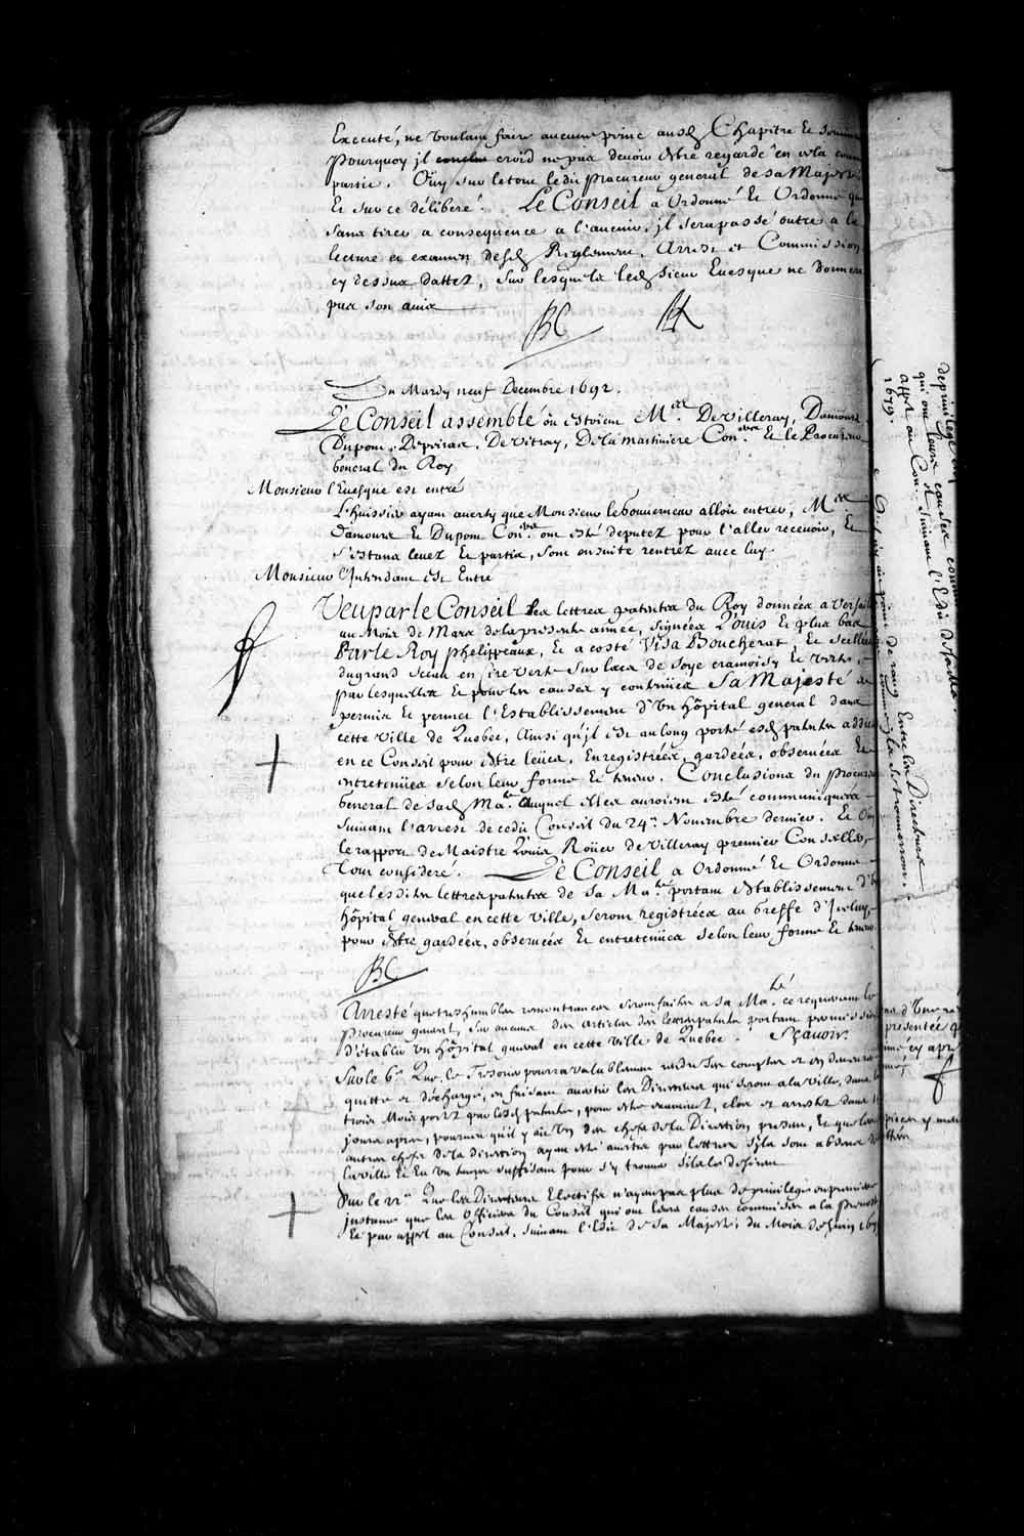 Executé, ne voulant faire aucune peine ausd Chapitre Et
pourquoy jl croid ne pas devoir Estre regardé en cela
partie. Oüy sur letout ledit procureur general de sa Majesté
Et sur ce déliberé. Le Conseil a Ordonné Et Ordonne que
sans tirer a consequence a l'auenir, jl sera passé outre a la
lecture et examen desd Reglement, Arrest et Commission
cy dessus dattez, sur lesquels led sieur Euesque ne donnera
pas son auis
Du Mardy neuf Decembre 1692.
Le Conseil assemblé où estoient Mrs. De Villeray, Damours
Dupont, Depeiras, De Vitray, De la martiniere Coners. Et le Procureur
General du Roy
Monsieur l'Euesque est entré
L'huissier ayant auerty que Monsieur le Gouuerneur alloit entrer, Mrs
Damours Et Dupont Coners. ont esté deputez pour l'aller receuoir, Et
s'estans leuez Et partis, sont ensuite rentrez auec luy
Monsieur l'Intendant est Entré
Veu par le Conseil les lettres patentes du Roy données a Versailles
au Mois de Mars de la presente année, signées Louis Et plus bas
Par le Roy phelippeaux, Et a costé Visa Boucherat, Et scellées
du grand sceau en Cire verte sur lacs de soye cramoisy Et verte,
par lesquelles Et pour les causes y contenües Sa Majesté a
permis Et permet l'Establissement d'Vn hôpital general dans
cette Ville de Quebec, Ainsi qu'jl est au long porté esd patentes
en ce Conseil pour Estre leües, Enregistrées, gardées, obseruées Et
entretenües selon leur forme Et teneur. Conclusions du procureur
General de sad Mate. auquel Elles auroient esté communiquées
suiuant l'arrest de cedit Conseil du 24e. Nouembre dernier. Et Oüy
le rapport de Maistre Louis Roüer de Villeray premier Conseiller,
Tout consideré. Le Conseil a Ordonné Et Ordonne
que lesdites lettres patentes de Sa Mate. portant establissement d'Vn
hôpital general en cette ville, seront registrées au Greffe d'Jceluy,
pour Estre gardées, obseruées Et entretenües selon leur forme Et teneur
Arresté que tres humbles remontrances seront faites a sa Maté. ce requerant le
procureur general, sur aucuns des articles des lettres patentes portant permission
d'établir Vn hôpital general en cette ville de Quebec. Sçauoir.
Sur le 6e Que le Tresorier pourra valablement rendre ses comptes et en demeurer
quitte et décharge, en faisant auertir les Directeurs qui seront a la ville, dans les
trois Mois portez par lesd patentes, pour estre examinez, clos et arrestez dans
jours apres, pourueu qu'il y ait Vn des chefs de la Direction present, Et que les
autres chefs de la direction ayent esté auertis par lettres s'ils sont absens de
la ville Et En Vn temps suffisant pour s'y trouuer s'ils le desirent
Sur le VIe Que les Directeurs Electifs n'ayent pas plus de priuilege en premiere
jnstance que les Officiers du Conseil qui ont leurs causes commises a la Preuosté
Et par appel au Conseil, suiuant l'Edit de Sa Majesté du Mois de Juin 1679
de priuilege
qui ont leurs causes commises
appel au Conel suiuant l'Edit
1679.
de rang Entre les Directeurs
presentée